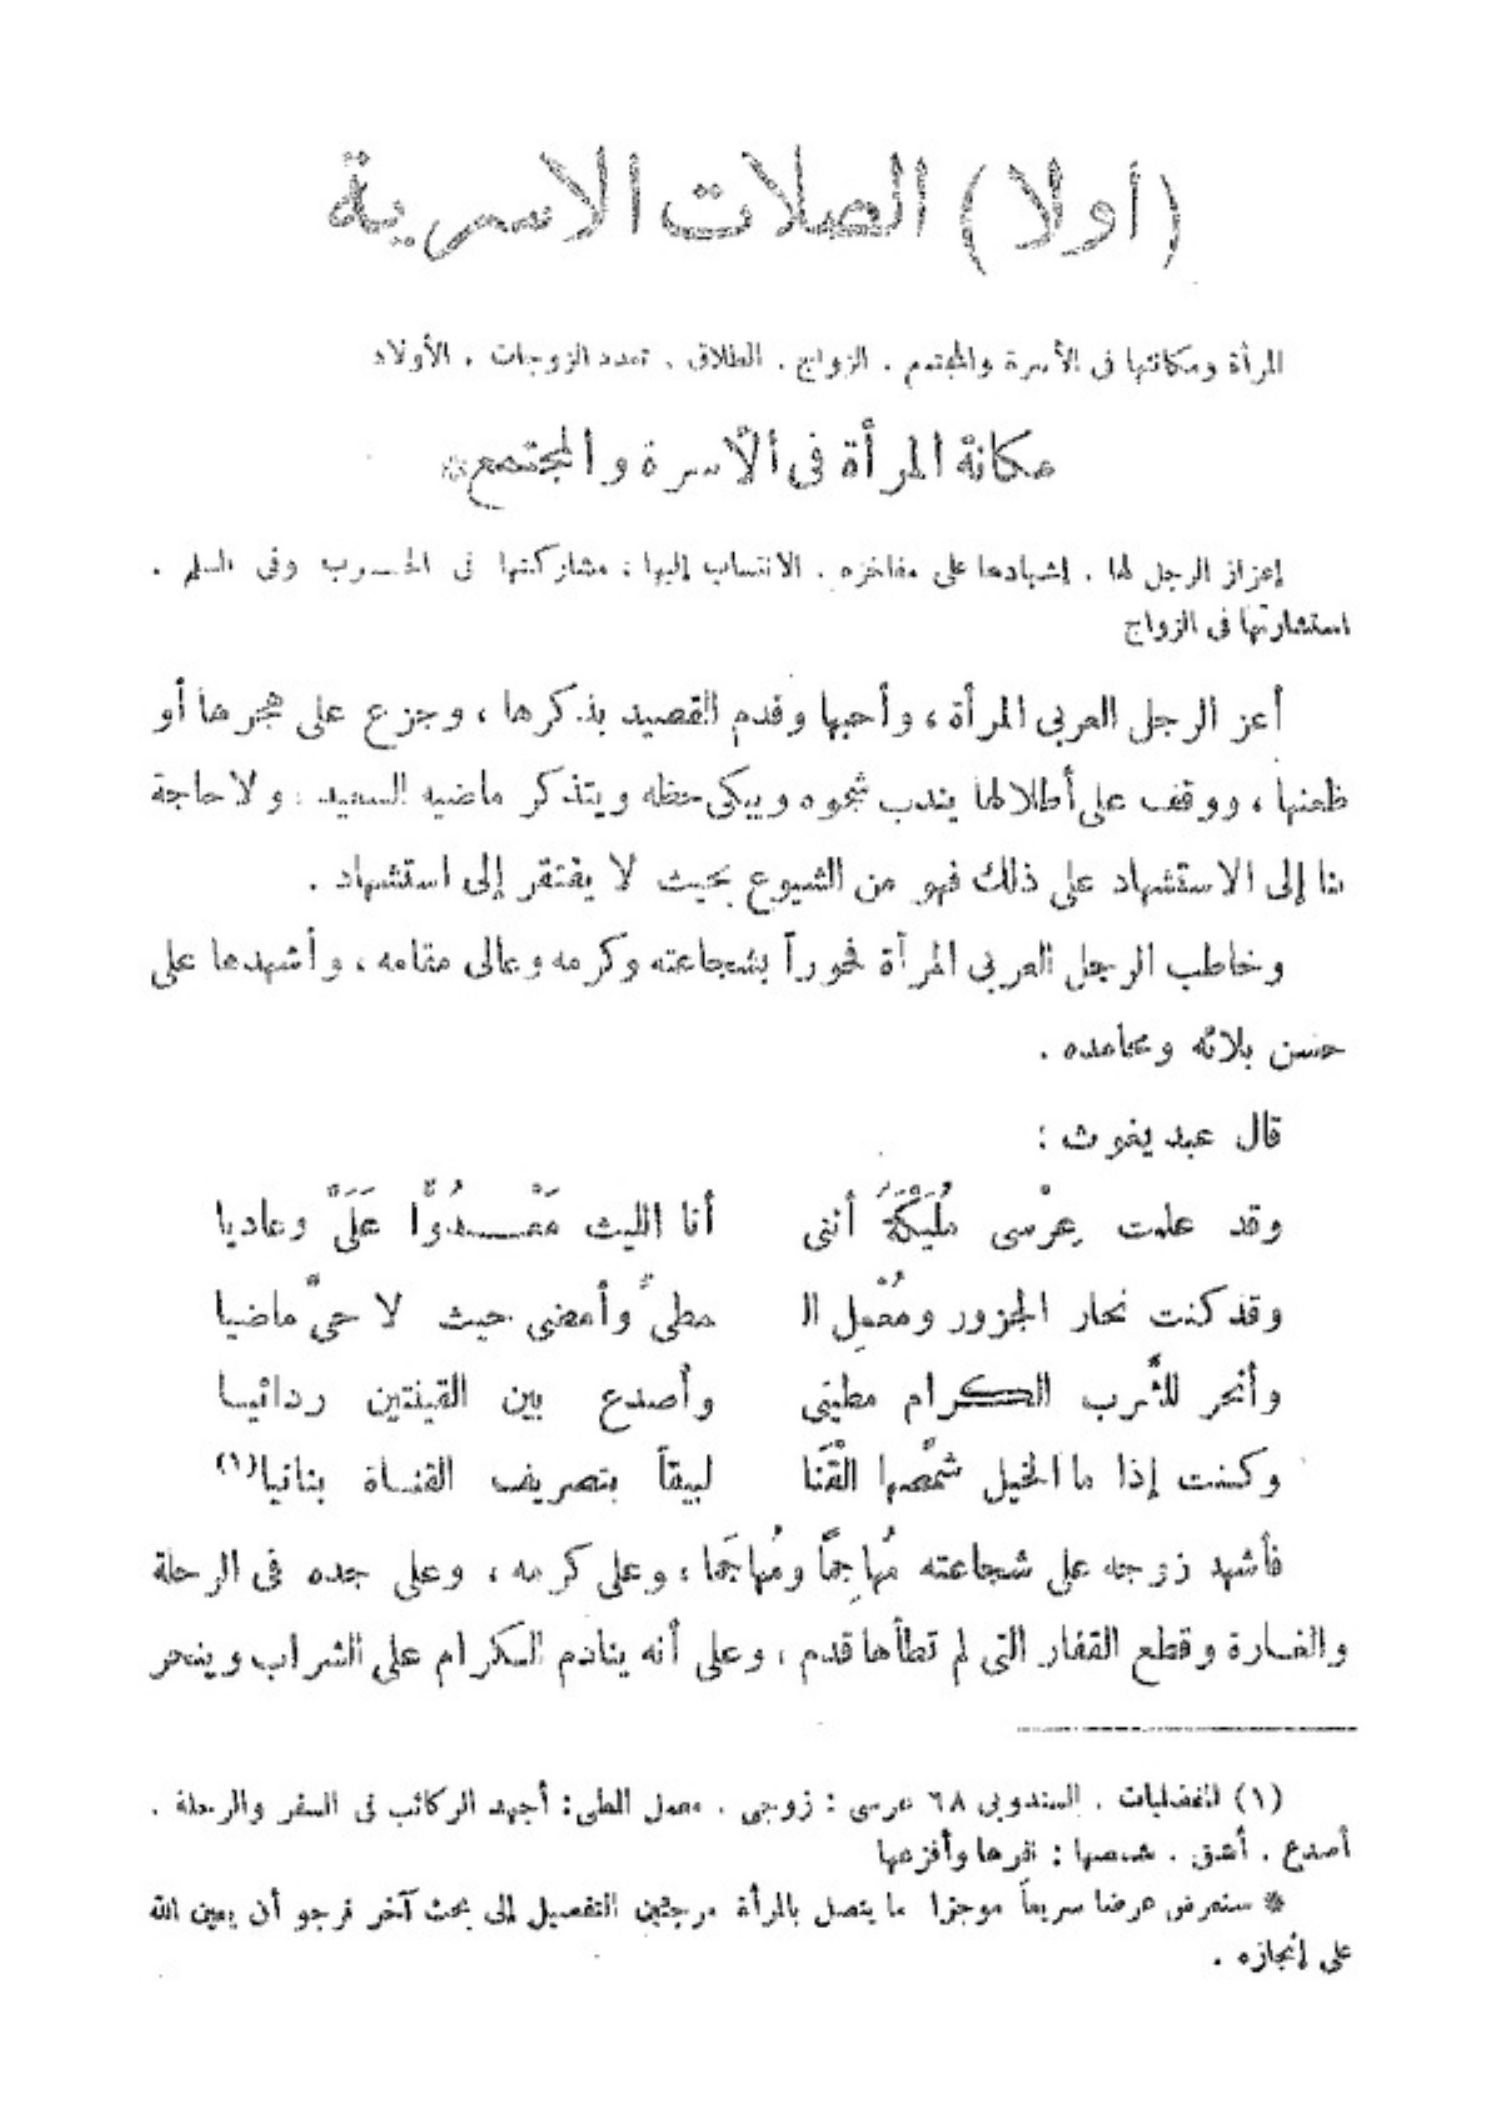 (أولا) الصلات الاسرية
المرأة ومكانتها فى الأسرة والمجتمع . الزواج . الطلاق . تعدد الزوجات . الأولاد
مكانة المرأة فى الأسرة والمجتمع*
إعزاز الرجل لها . إشهادها على مفاخره . الانتساب إليها : مشاركتها فى الحرب وفى السلم .
استشارتها فى الزواج
أعز الرجل العربى المرأة ، وأحبها وقدم القصيد بذكرها ، وجزع على هجرها أو
ظعنها ، ووقف على أطلالها يندب شجوه ويبكى حظه ويتذكر ماضيه السعيد . ولا حاجة
بنا إلى الاستشهاد على ذلك فهو من الشيوع بحيث لا يفتقر إلى استشهاد .
وخاطب الرجل العربى المرأة فخوراً بشجاعته وكرمه وعالى مقامه ، وأشهدها على
حسن بلائه ومحامده .
قال عبد يغوث :
وقد علمت عِرْسى مُلَيْكَةُ أننى أنا الليث مَعْـدُوًّا عَلَىَّ وعاديا
وقد كنت نحار الجزور ومُعْمِل الـ مطىِّ وأمضى حيث لا حىَّ ماضيا
وأنحر للشَّرب الكرام مطيتى وأصدع بين القينتين ردائيـا
وكنت إذا ما الخيل شَمَّصها الْقَنَا لبيقاً بتصريف القنـاة بنانيا(١)
فأشهد زوجته على شجاعته مُهاجِمًا ومُهاجَما ، وعلى كرمه ، وعلى جده فى الرحلة
والغـارة وقطع القفار التى لم تطأها قدم ، وعلى أنه ينادم الكرام على الشراب وينحر
(١) المفضليات . السندوبى ٦٨ عرسى : زوجى . معمل المطى : أجهد الركائب فى السفر والرحلة .
أصدع . أشق . شمصها : نفرها وأفزعها
* سنعرض عرضا سريعاً موجزا ما يتصل بالمرأة مرجئين التفصيل إلى بحث آخر نرجو أن يعين الله
على إنجازه .